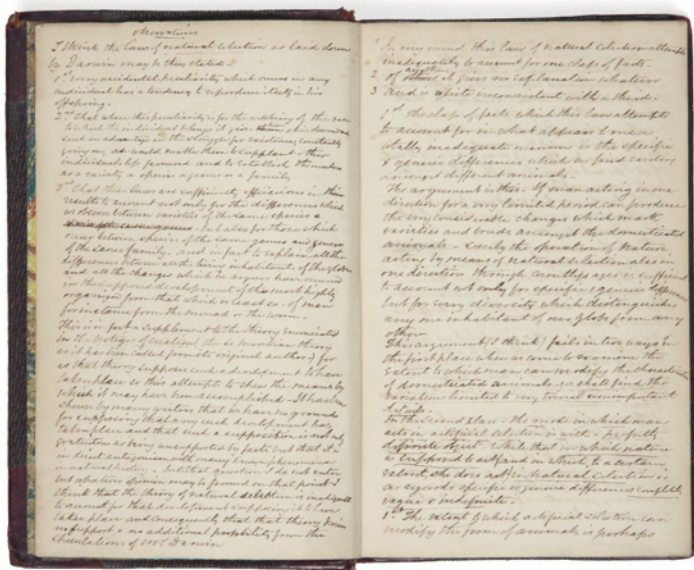 Observations
I think the law of natural selection as laid down
by Darwin may be thus stated
1st every accidental peculiarity which occurs in any
individual has a tendency to reproduce itself in his
offspring.
2nd That when this peculiarity is for the wellbeing of the race
to which the individual belongs it gives them
such an advantage in the struggle for existence constantly
going on as would enable them to supplant other
individuals less favored and to establish themselves
as a variety a species a genus or a family
3rd That these laws are sufficiently efficacious in their
results to account not only for the differences which
we observe between varieties of the same species
but also for those which
occur between species of the same genus and genera
of the same family and in fact to explain all the
differences between the living inhabitants of the globe
and all the changes which in ages have occurred
in the supposed development of the most highly
organized from that which is least so of man
for instance from the monad or the worm
This is in fact a supplement to the theory enunciated
in the Vestiges of Creation (the Lamarckian theory
as it has been called from its original author) for
as that theory supposes such a development to have
taken place so this attempts to shew the means by
which it may have been accomplished It has been
shewn by many writers that we have no ground
for supposing that any such development has
taken place and that such a supposition is not only
gratuitous as being unsupported by facts but that it is
in direct antagonism with many known phenomena
in natural history But that question I do not enter
but whatever opinion may be formed on that point I
think that the theory of natural selection is inadequate
to account for that development supposing it to have
taken place and consequently that that theory
no support & no additional probability from the
speculations of Mr Darwin
1 In my mind this law of natural selection attempts
inadequately to account for one class of facts
2 of another it gives no explanation whatever
3 and is quite inconsistent with a third
1st The class of facts which this law attempts
to account for in what appears to me a
totally inadequate manner is the specific
& generic differences which we find existing
amongst different animals.
The argument is this. If man acting in one
direction for a very limited period can produce
the very considerable changes which mark
varieties and breeds amongst the domesticated
animals surely the operation of Nature
acting by means of natural selection also in
one direction through countless ages is sufficient
to account not only for specific & generic differences
but for every diversity which distinguishes
any one inhabitant of our globe from any
other
This argument (I think) fails in two ways In
the first place when we come to examine the
extent to which man can modify the characteristics
of domesticated animals we shall find the
variations limited to very trivial unimportant
details.
In the second place the mode in which man
acts in artificial selection is with a perfectly
definite object while that in which nature
is supposed to act (and in which, to a certain
extent, she does act) in Natural selection is
as regards specific or generic differences completely
vague & indefinite.
1st The extent to which artificial selection can
modify the form of animals is perhaps